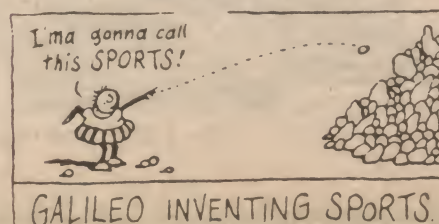 I'ma gonna call
this SPORTS!
GALILEO INVENTING SPORTS